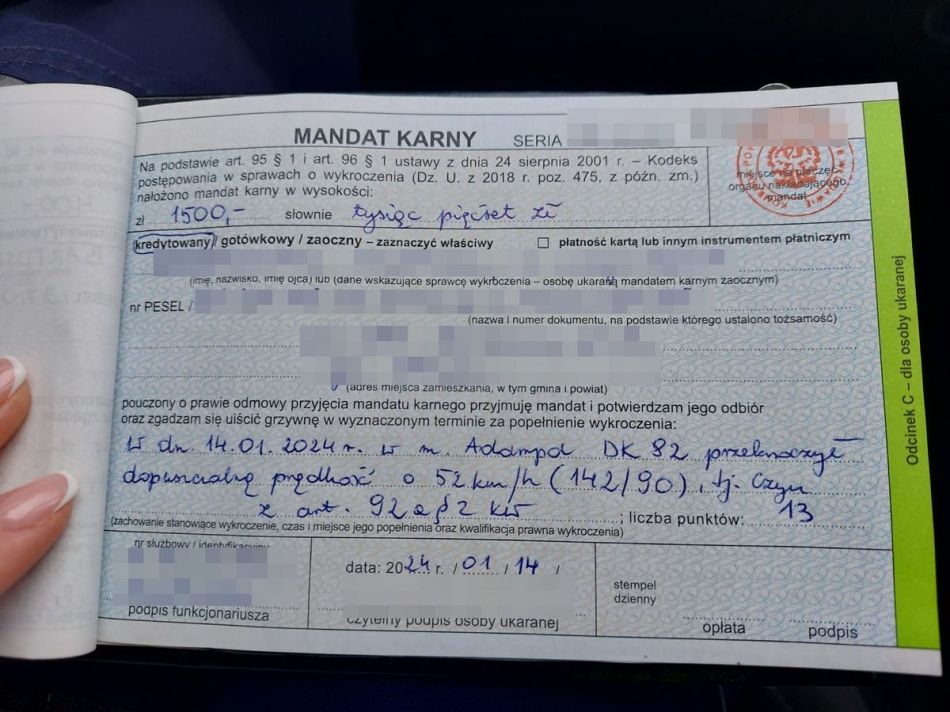 MANDAT KARNY SERIA
Na podstawie art. 95 § 1 i art. 96 § 1 ustawy z dnia 24 sierpnia 2001 r. – Kodeks
postępowania w sprawach o wykroczenia (Dz. U. z 2018 r. poz. 475, z późn. zm.)
nałożono mandat karny w wysokości:
miejsce na pieczęć
organu nakładającego
mandat
zł 1500,- słownie tysiąc pięćset zł
(kredytowany) / gotówkowy / zaoczny – zaznaczyć właściwy
płatność kartą lub innym instrumentem płatniczym
(imię, nazwisko, imię ojca) lub (dane wskazujące sprawcę wykroczenia – osobę ukaraną mandatem karnym zaocznym)
nr PESEL /
(nazwa i numer dokumentu, na podstawie którego ustalono tożsamość)
(adres miejsca zamieszkania, w tym gmina i powiat)
pouczony o prawie odmowy przyjęcia mandatu karnego przyjmuję mandat i potwierdzam jego odbiór
oraz zgadzam się uiścić grzywnę w wyznaczonym terminie za popełnienie wykroczenia:
W dn. 14.01.2024 r. w m. Adampol DK 82 przekroczył
dopuszczalną prędkość o 52 km/h (142/90), tj. czyn
z art. 92a § 2 kw ; liczba punktów: 13
(zachowanie stanowiące wykroczenie, czas i miejsce jego popełnienia oraz kwalifikacja prawna wykroczenia)
nr służbowy / identyfikacyjny
podpis funkcjonariusza
data: 2024 r. / 01 / 14 /
czytelny podpis osoby ukaranej
stempel
dzienny
opłata podpis
Odcinek C – dla osoby ukaranej